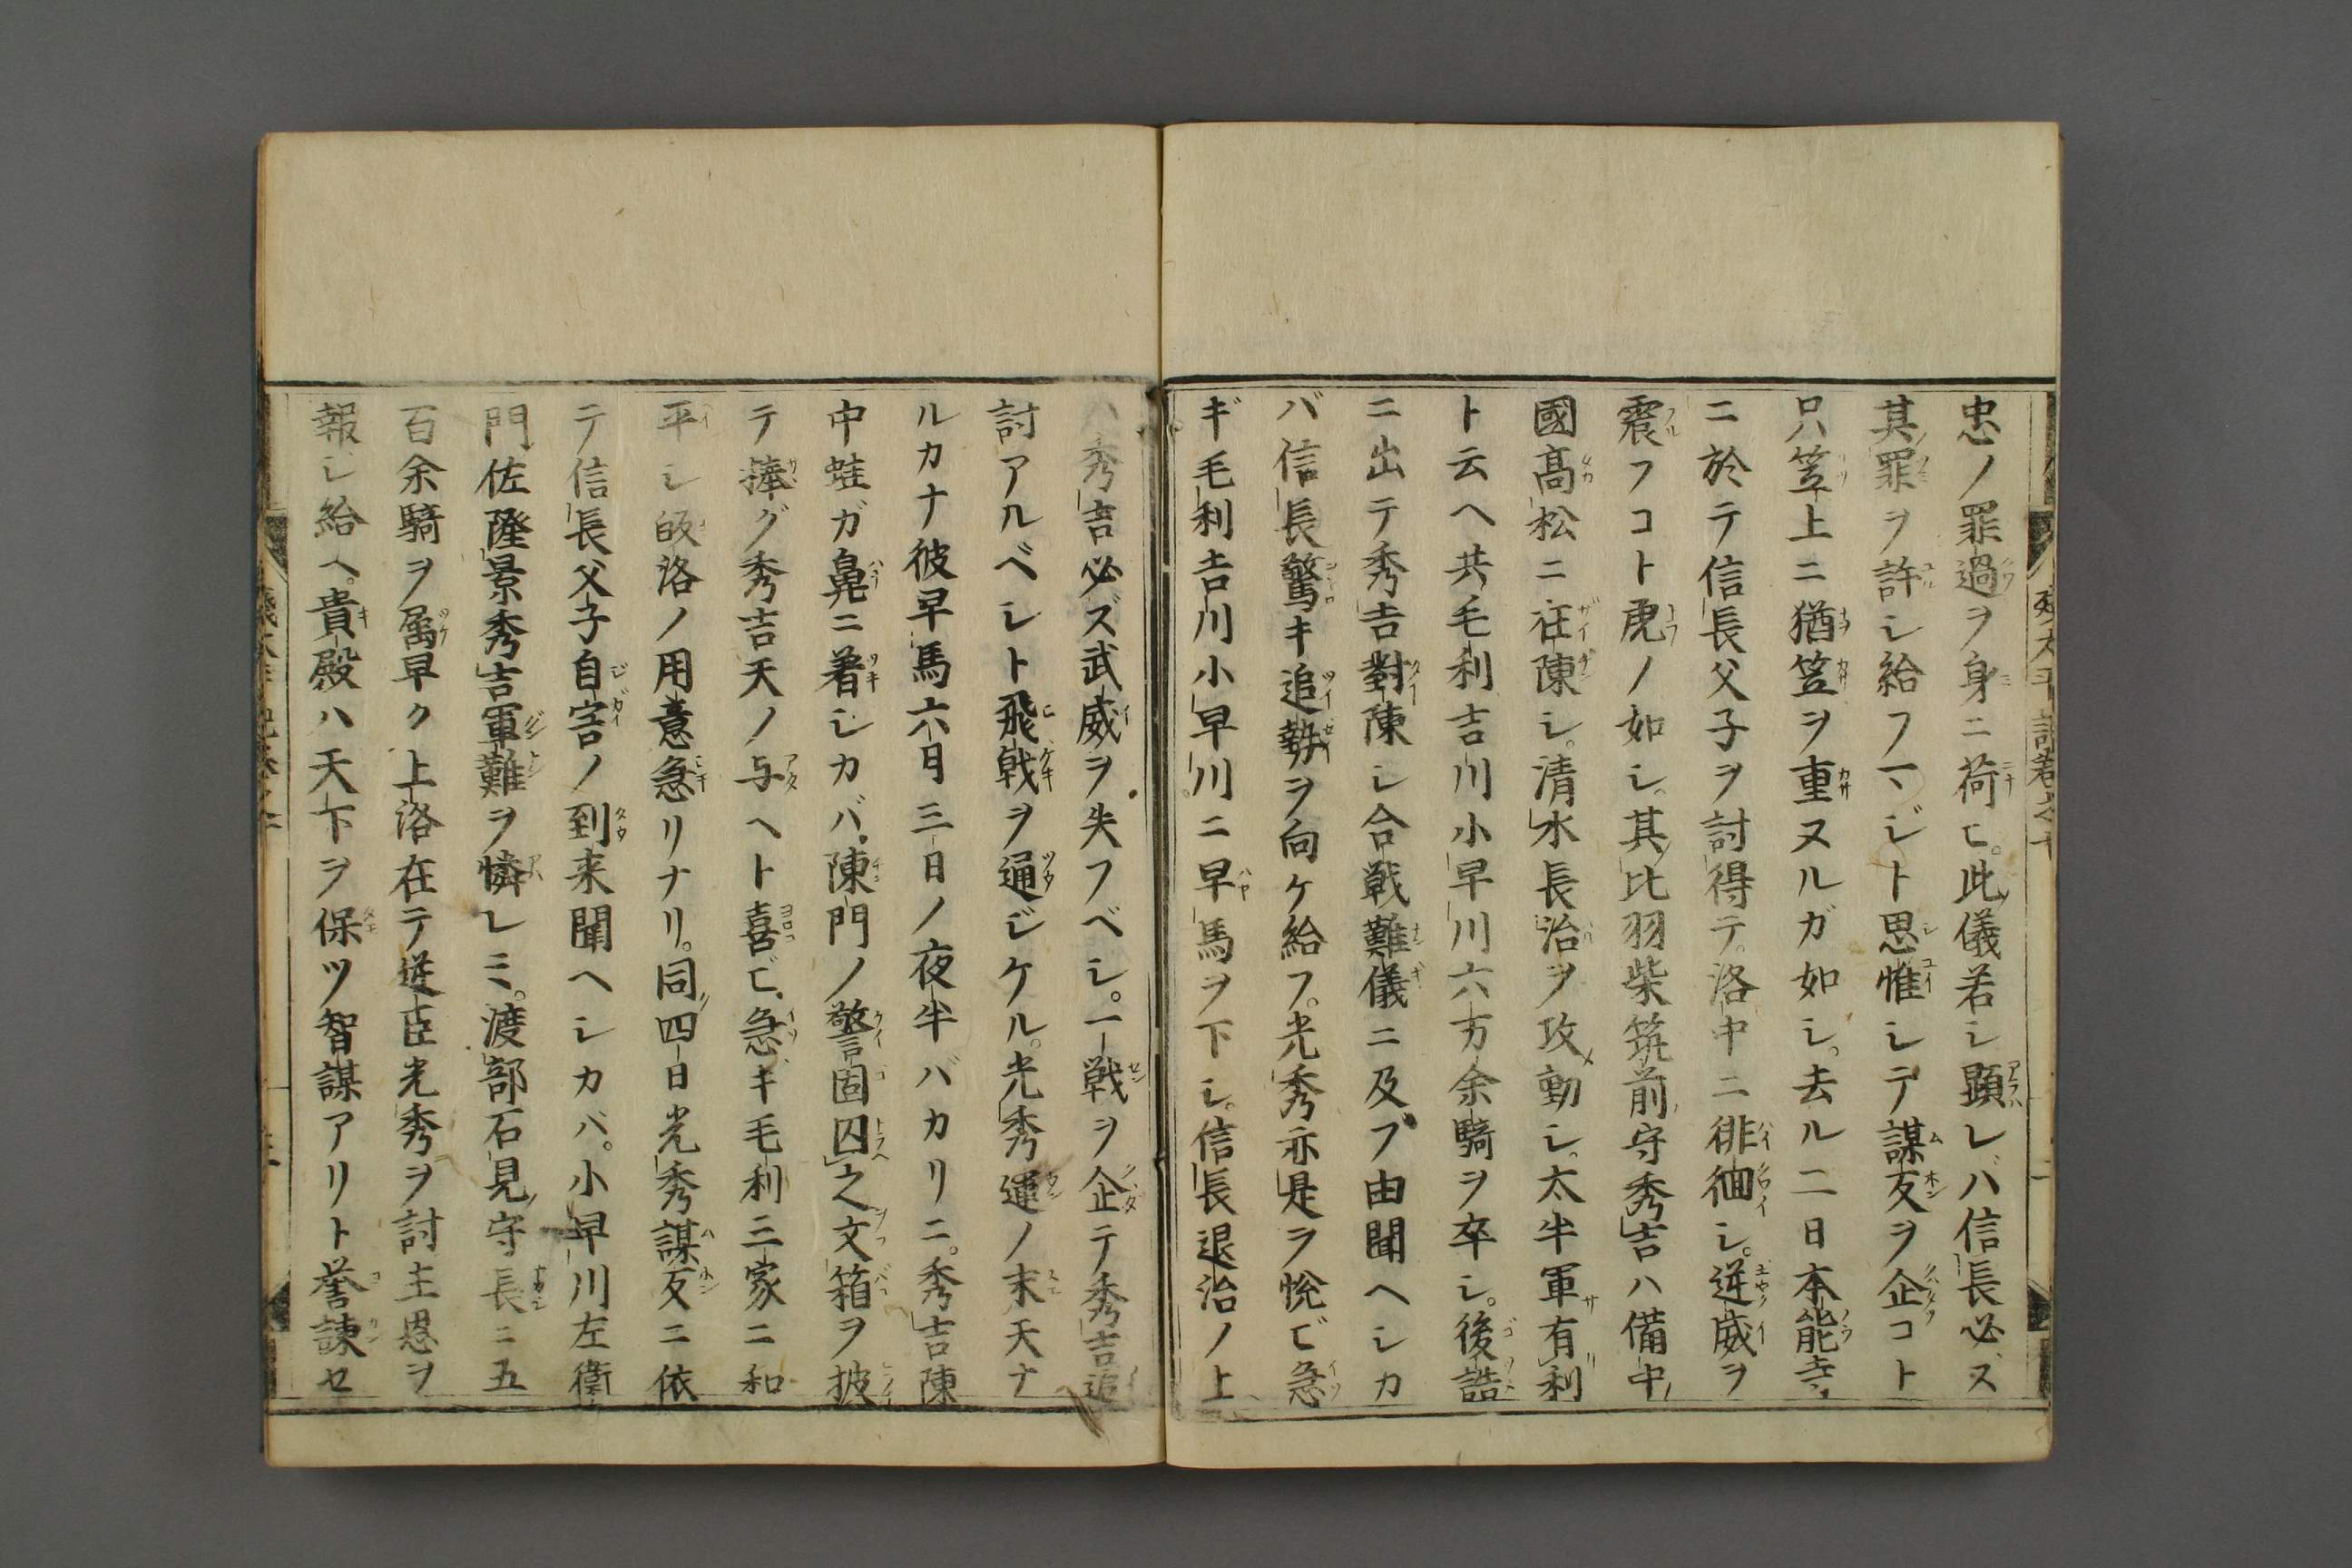 忠ノ罪過ヲ身ニ荷ヒ。此儀若シ顕レバ信長必ス
其罪ヲ許シ給フマジト思惟シテ謀反ヲ企コト
只笠上ニ猶笠ヲ重ヌルガ如シ。去ル二日本能寺
ニ於テ信長父子ヲ討得テ。洛中ニ徘徊シ。逆威ヲ
震フコト虎ノ如シ。其比羽柴筑前守秀吉ハ備中
國髙松ニ在陳シ。清水長治ヲ攻動シ。太半軍有利
ト云ヘ共毛利吉川小早川六万余騎ヲ卒シ。後詰
ニ出テ秀吉對陳シ合戦難儀ニ及フ由聞ヘシカ
バ信長驚キ追勢ヲ向ケ給フ。光秀亦是ヲ悦ビ急
ギ毛利吉川小早川ニ早馬ヲ下シ。信長退治ノ上
ハ秀吉必ズ武威ヲ失フベシ。一戦ヲ企テ秀吉追
討アルベシト飛戟ヲ通ジケル。光秀運ノ末天ナ
ルカナ彼早馬六月三日ノ夜半バカリニ。秀吉陳
中蛙ガ鼻ニ着シカバ。陳門ノ警固囚之文箱ヲ披
テ捧グ秀吉天ノ与ヘト喜ビ。急ギ毛利三家ニ和
平シ皈洛ノ用意急リナリ。同四日光秀謀反ニ依
テ信長父子自害ノ到来聞ヘシカバ。小早川左衛
門佐隆景秀吉軍難ヲ憐レミ。渡部石見守長ニ五
百余騎ヲ属早ク上洛在テ逆臣光秀ヲ討主恩ヲ
報シ給ヘ。貴殿ハ天下ヲ保ツ智謀アリト誉諌セ